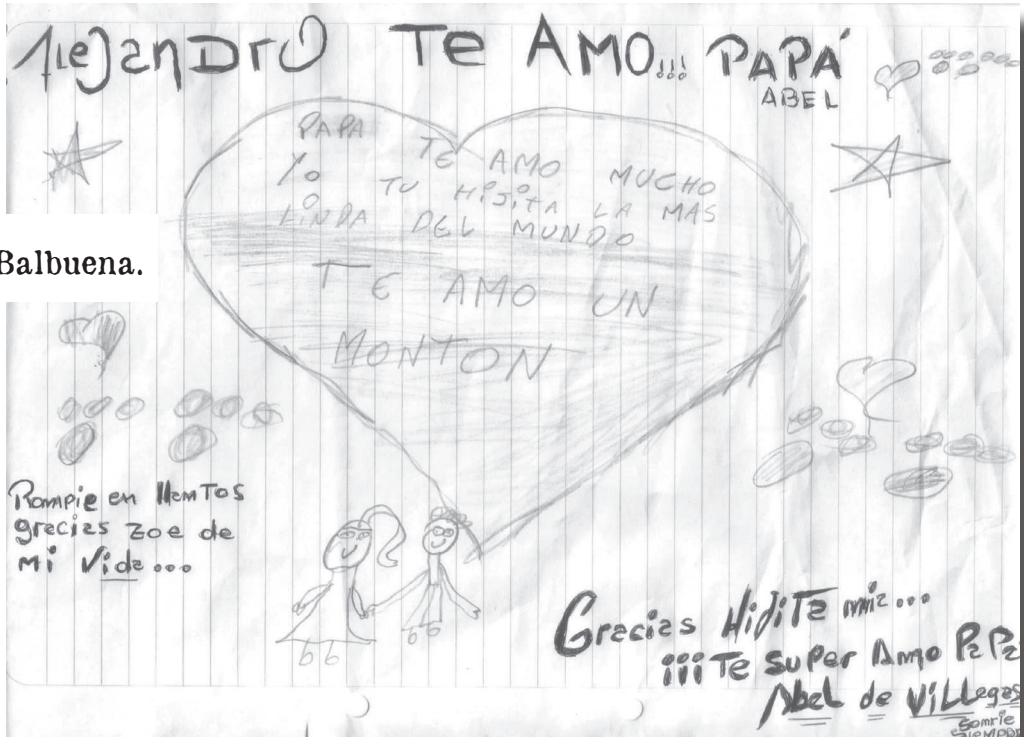 Alejandro TE AMO... PAPÁ
ABEL
PAPA TE AMO MUCHO
Yo TU HiJiTA LA MAS
LiNDA DEL MUNDO
TE AMO UN
MONTON
Balbuena.
Rompie en llantos
gracias zoe de
mi Vida...
Gracias HiJiTa mia...
¡¡¡Te super Amo PaPa
Abel de ViLLegas
Somrie
SIEMPRE